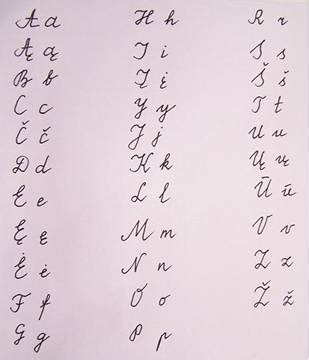 A a
Ą ą
B b
C c
Č č
D d
E e
Ę ę
Ė ė
F f
G g
H h
I i
Į į
Y y
J j
K k
L l
M m
N n
O o
P p
R r
S s
Š š
T t
U u
Ų ų
Ū ū
V v
Z z
Ž ž